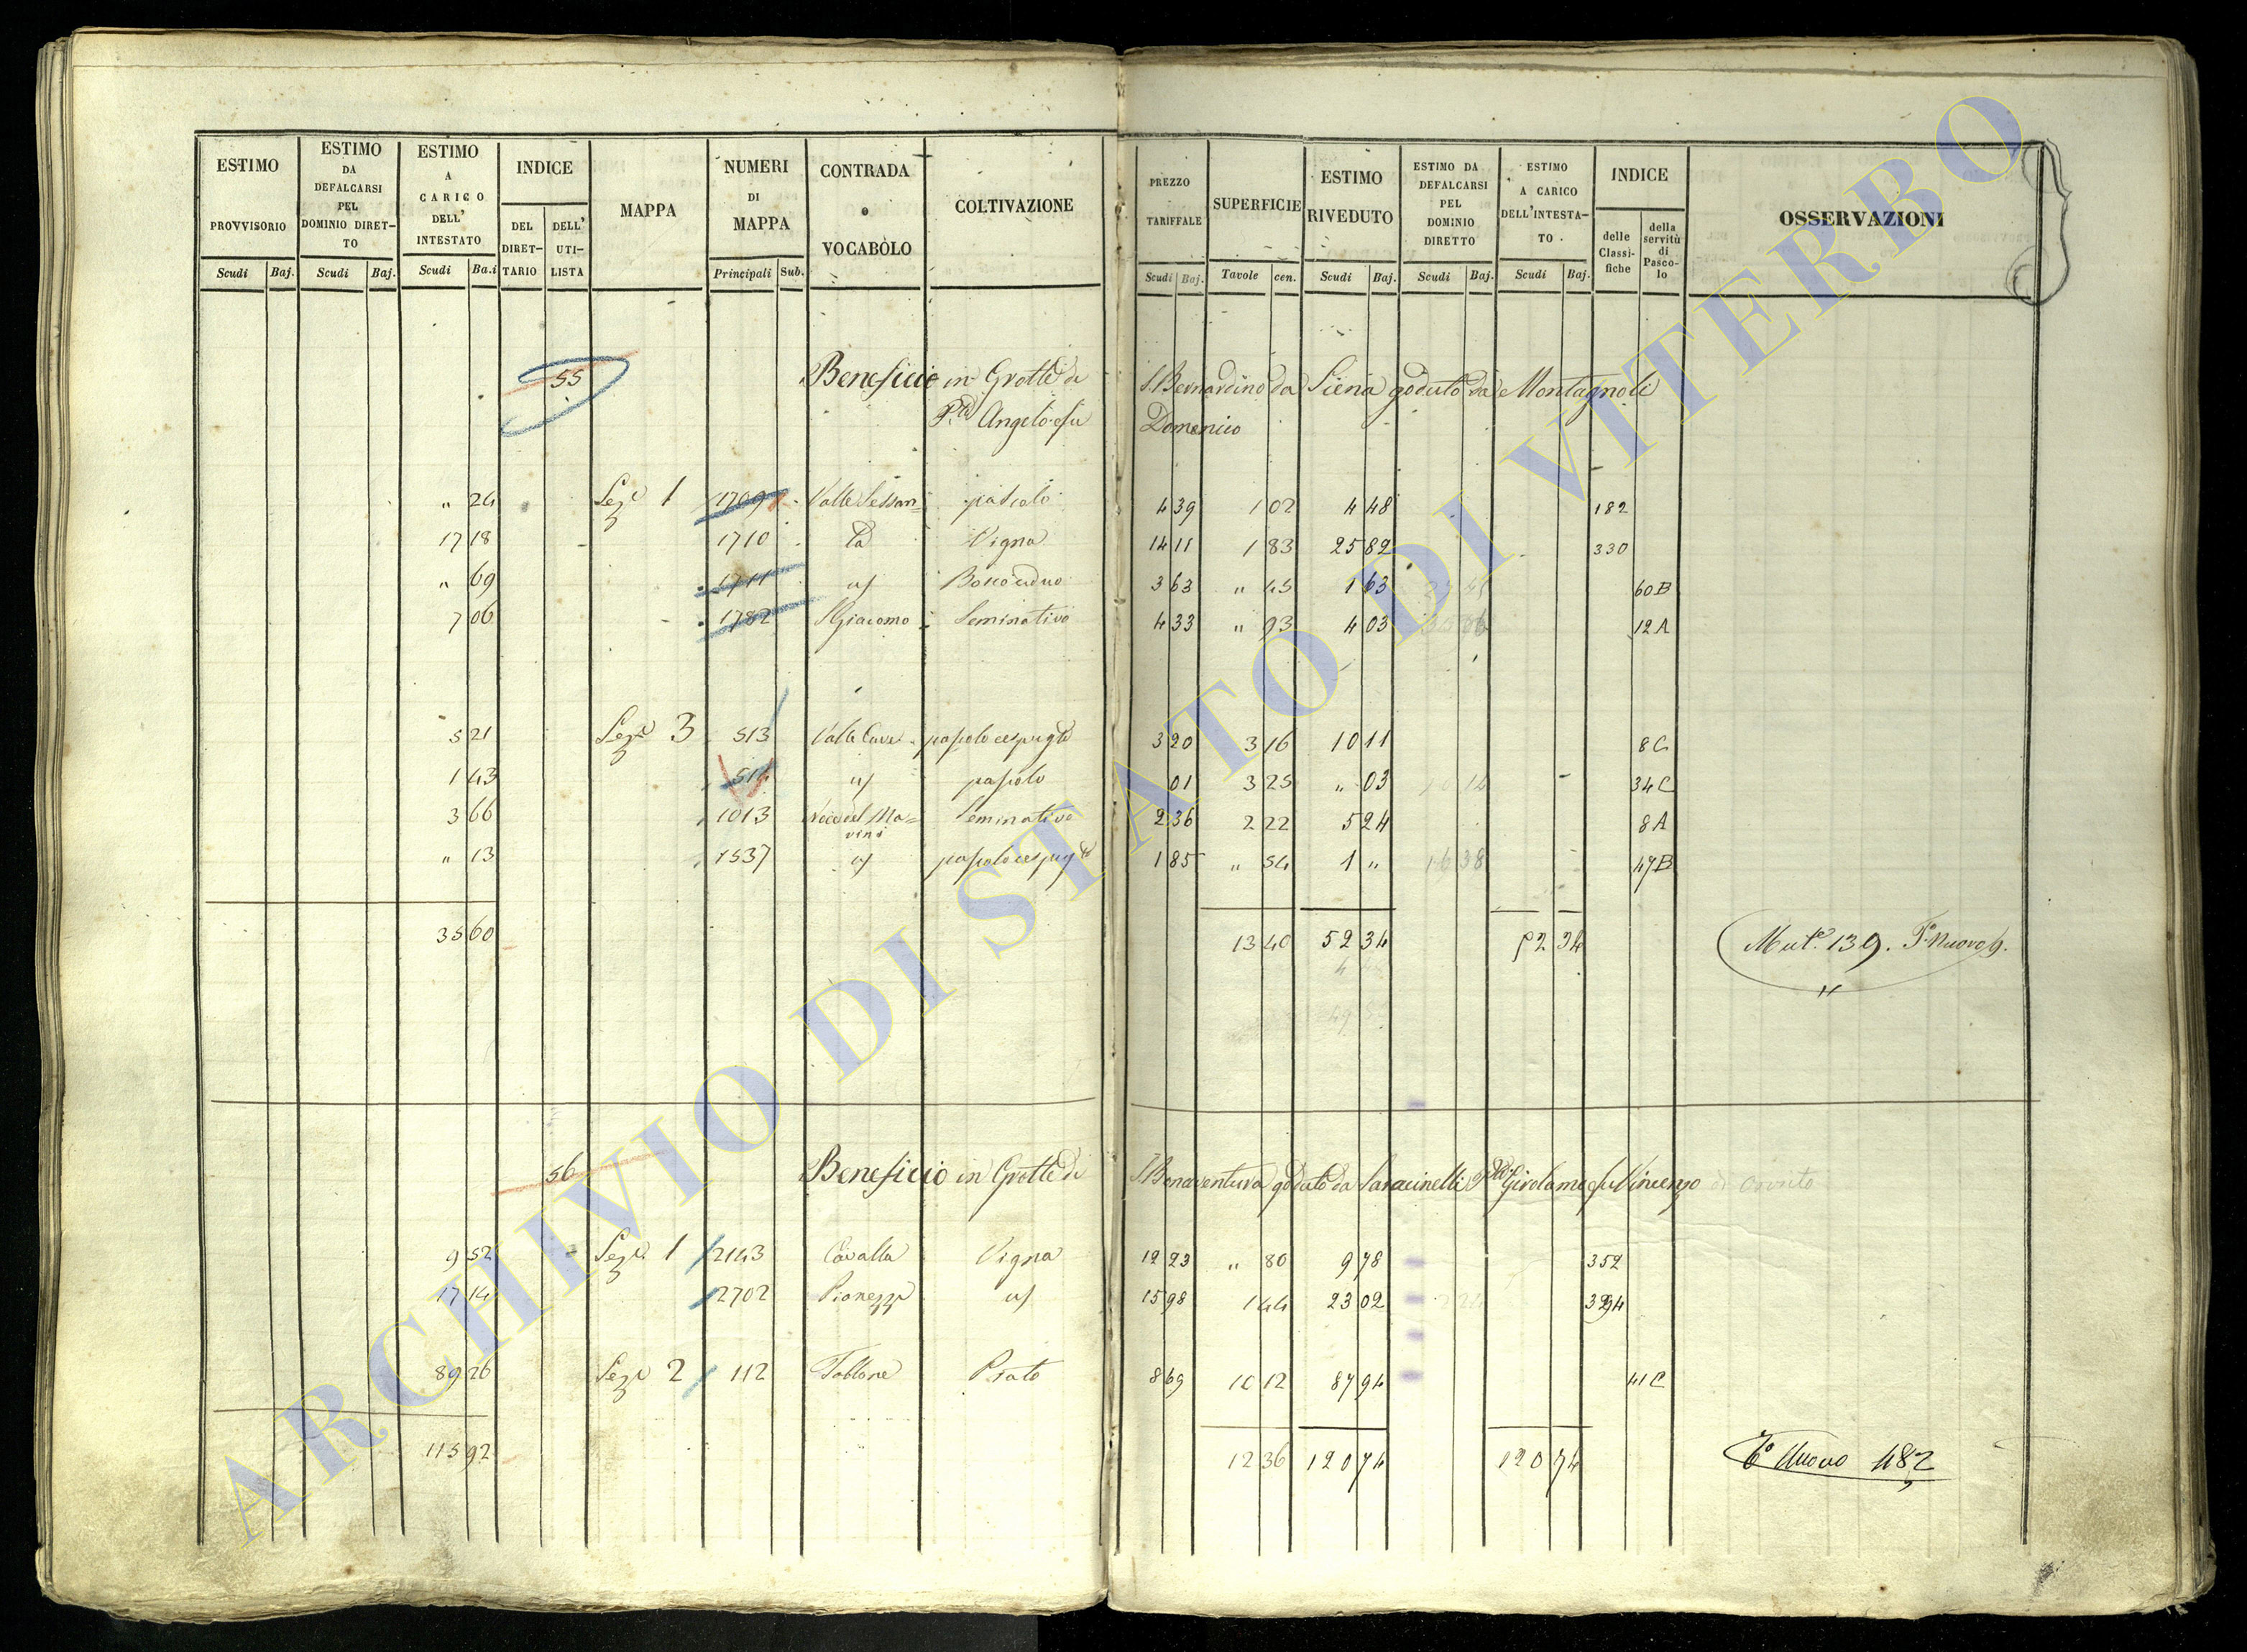 ESTIMO PROVVISORIO Scudi Baj.
ESTIMO DA DEFALCARSI PEL DOMINIO DIRET-TO Scudi Baj.
ESTIMO A CARICO DELL' INTESTATO Scudi Ba.i
INDICE DEL DIRET-TARIO DELL' UTI-LISTA
MAPPA
NUMERI DI MAPPA Principali Sub.
CONTRADA o VOCABOLO
COLTIVAZIONE
PREZZO TARIFFALE Scudi Baj.
SUPERFICIE Tavole cen.
ESTIMO RIVEDUTO Scudi Baj.
ESTIMO DA DEFALCARSI PEL DOMINIO DIRETTO Scudi Baj.
ESTIMO A CARICO DELL'INTESTA-TO. Scudi Baj.
INDICE delle Classi-fiche della servitù di Pasco-lo
OSSERVAZIONI
55 Beneficio in Grotte di S. Bernardino da Siena goduto da Montagnoli
Angelo fu Domenico
" 24 Sez 1 1709 pascolo 4 39 1 02 4 48 182
17 18 1710 Vigna 14 11 1 83 25 82 330
" 69 1711 Bosco ceduo 3 63 " 45 1 63 60B
7 06 1782 S Giacomo Seminativo 4 33 " 93 4 03 12A
5 21 Sez 3 513 Valle Cave pascolo cespug 3 20 3 16 10 11 8C
1 43 514 pascolo 01 3 25 " 03 34C
3 66 1013 Seminativo 2 36 2 22 5 24 8A
" 13 1537 pascolo cespug 1 85 " 54 1 " 47B
35 60 13 40 52 34 52 34 Mut. 139. Nuovo
56 Beneficio in Grotte di S. Bonaventura goduto da Saracinelli Girolamo fu Vincenzo
9 52 Sez 1 2143 Cavalla Vigna 12 23 " 80 9 78 352
17 14 2702 Pianezze 15 98 1 44 23 02 394
89 26 Sez 2 112 Prato 8 69 10 12 87 94 41C
115 92 12 36 120 74 120 74 Nuovo 482
ARCHIVIO DI STATO DI VITERBO